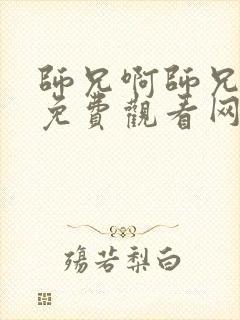 師兄啊師兄
免費觀看网
殇若梨白